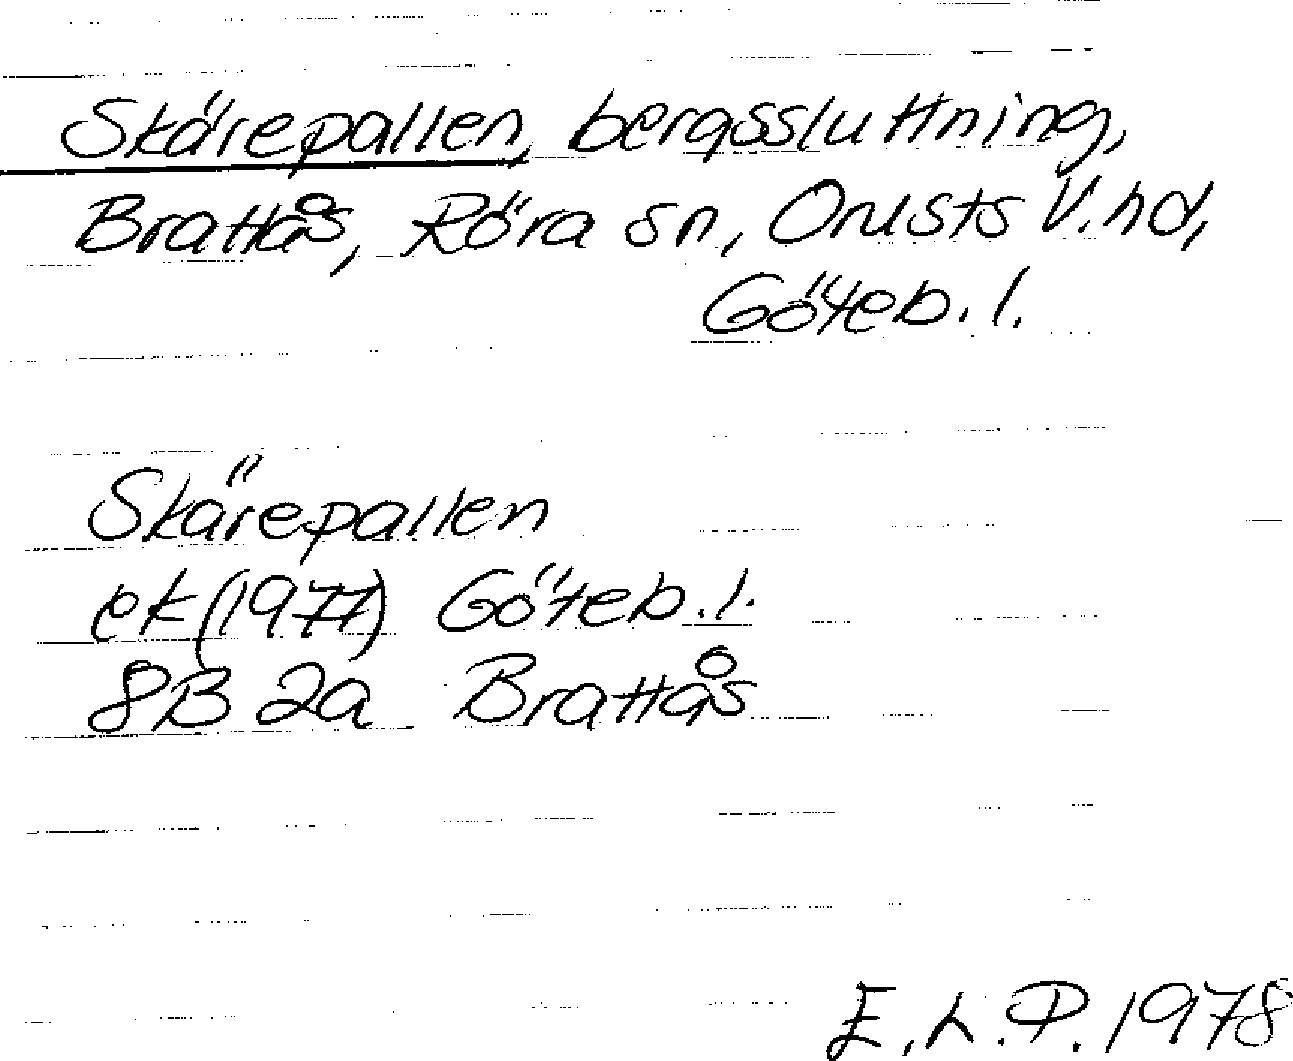 Skärepallen, bergssluttning,
Brattås, Röra sn, Orusts V. hd,
Göteb. l.
Skärepallen
ek (1977) Göteb. l.
8B 2a Brattås
E.L.P. 1978